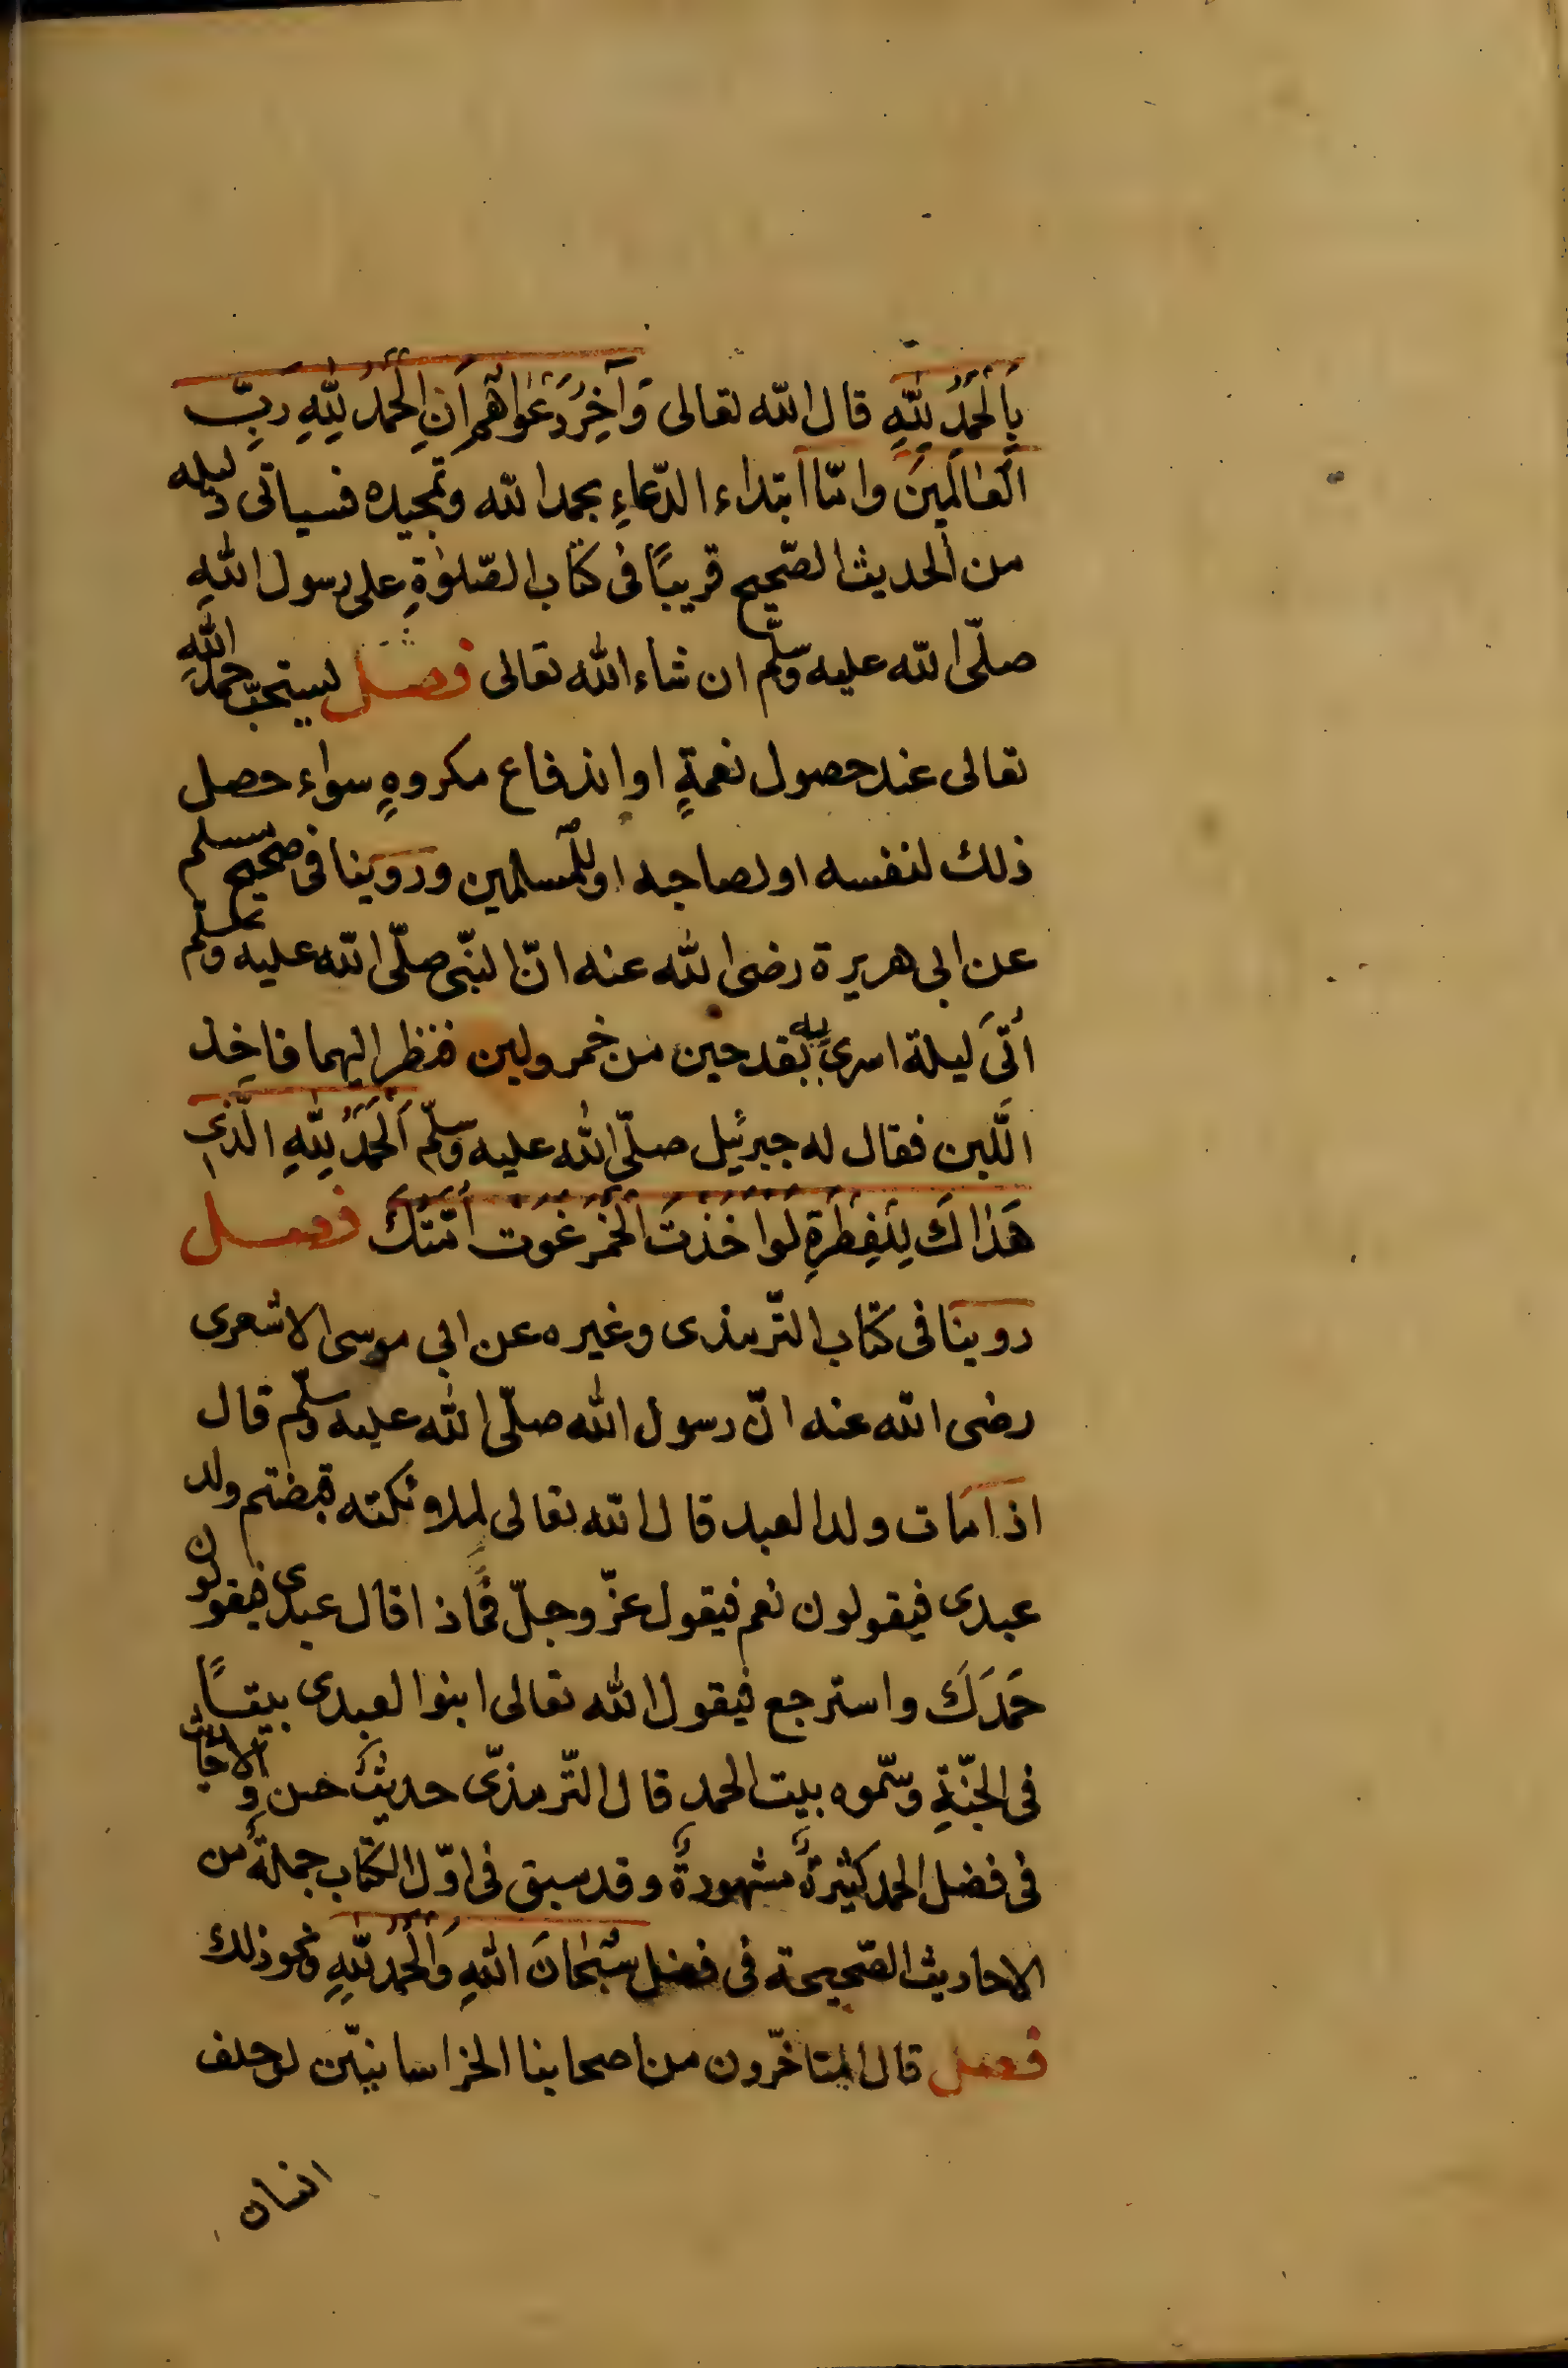 بِاَلْحَمْدُ لِلّٰهِ قال اللّه تعالى وَآخِرُ دَعْوٰاهُمْ اَنِ الْحَمْدُ لِلّٰهِ رَبِّ
الْعٰالَمِينَ وامّا ابتداء الدّعاءِ بحمد اللّه وتمجيده فسياتى دليله
من الحديث الصّحيح قريبًا فى كتاب الصّلوٰةِ على رسول اللّٰهِ
صلّى اللّه عليه وسلّم ان شاء اللّٰه تعالى فصل يستحبّ حمد اللّٰهِ
تعالى عند حصول نعمةٍ او اندفاع مكروهٍ سواء حصل
ذلك لنفسه او لصاحبه او للمسلمين وروينا فى صحيح مسلم
عن ابى هريرة رضى اللّٰه عنه انّ النبّى صلّى اللّٰه عليه وسلّم
اُتىَ ليلة اسرى به بقدحين من خمر ولبن فنظر اليهما فاخذ
اللّبن فقال له جبرئيل صلّى اللّٰه عليه وسلّم اَلْحَمْدُ لِلّٰهِ الَّذِى
هَدٰاكَ لِلْفِطْرَةِ لَوْ اَخَذْتَ الْخَمْرَ غَوَتْ اُمَّتُكَ فصل
روينا فى كتاب التّرمذى وغيره عن ابى موسى الاشعرى
رضى اللّه عنه انّ رسول اللّٰه صلّى اللّٰه عليه وسلّم قال
اذا مات ولد العبد قال اللّه تعالى لملائكته قبضتم ولد
عبدى فيقولون نعم فيقول عزّ وجلّ فماذا قال عبدى فيقولون
حَمَدَكَ واسترجع فيقول اللّٰه تعالى ابنوا لعبدى بيتًا
فى الجنّةِ وسّموه بيت الحمد قال التّرمذّى حديثٌ حسن والاحاديث
فى فضل الحمد كثيرةٌ مشهورةٌ وقد سبق فى اوّل الكتاب جملةٌ من
الاحاديث الصّحيحة فى فضل سُبْحٰانَ اللّٰهِ وَالْحَمْدُ لِلّٰهِ ونحو ذلك
فصل قال المتاخّرون من اصحابنا الخراسانيّن لو حلف
انسان